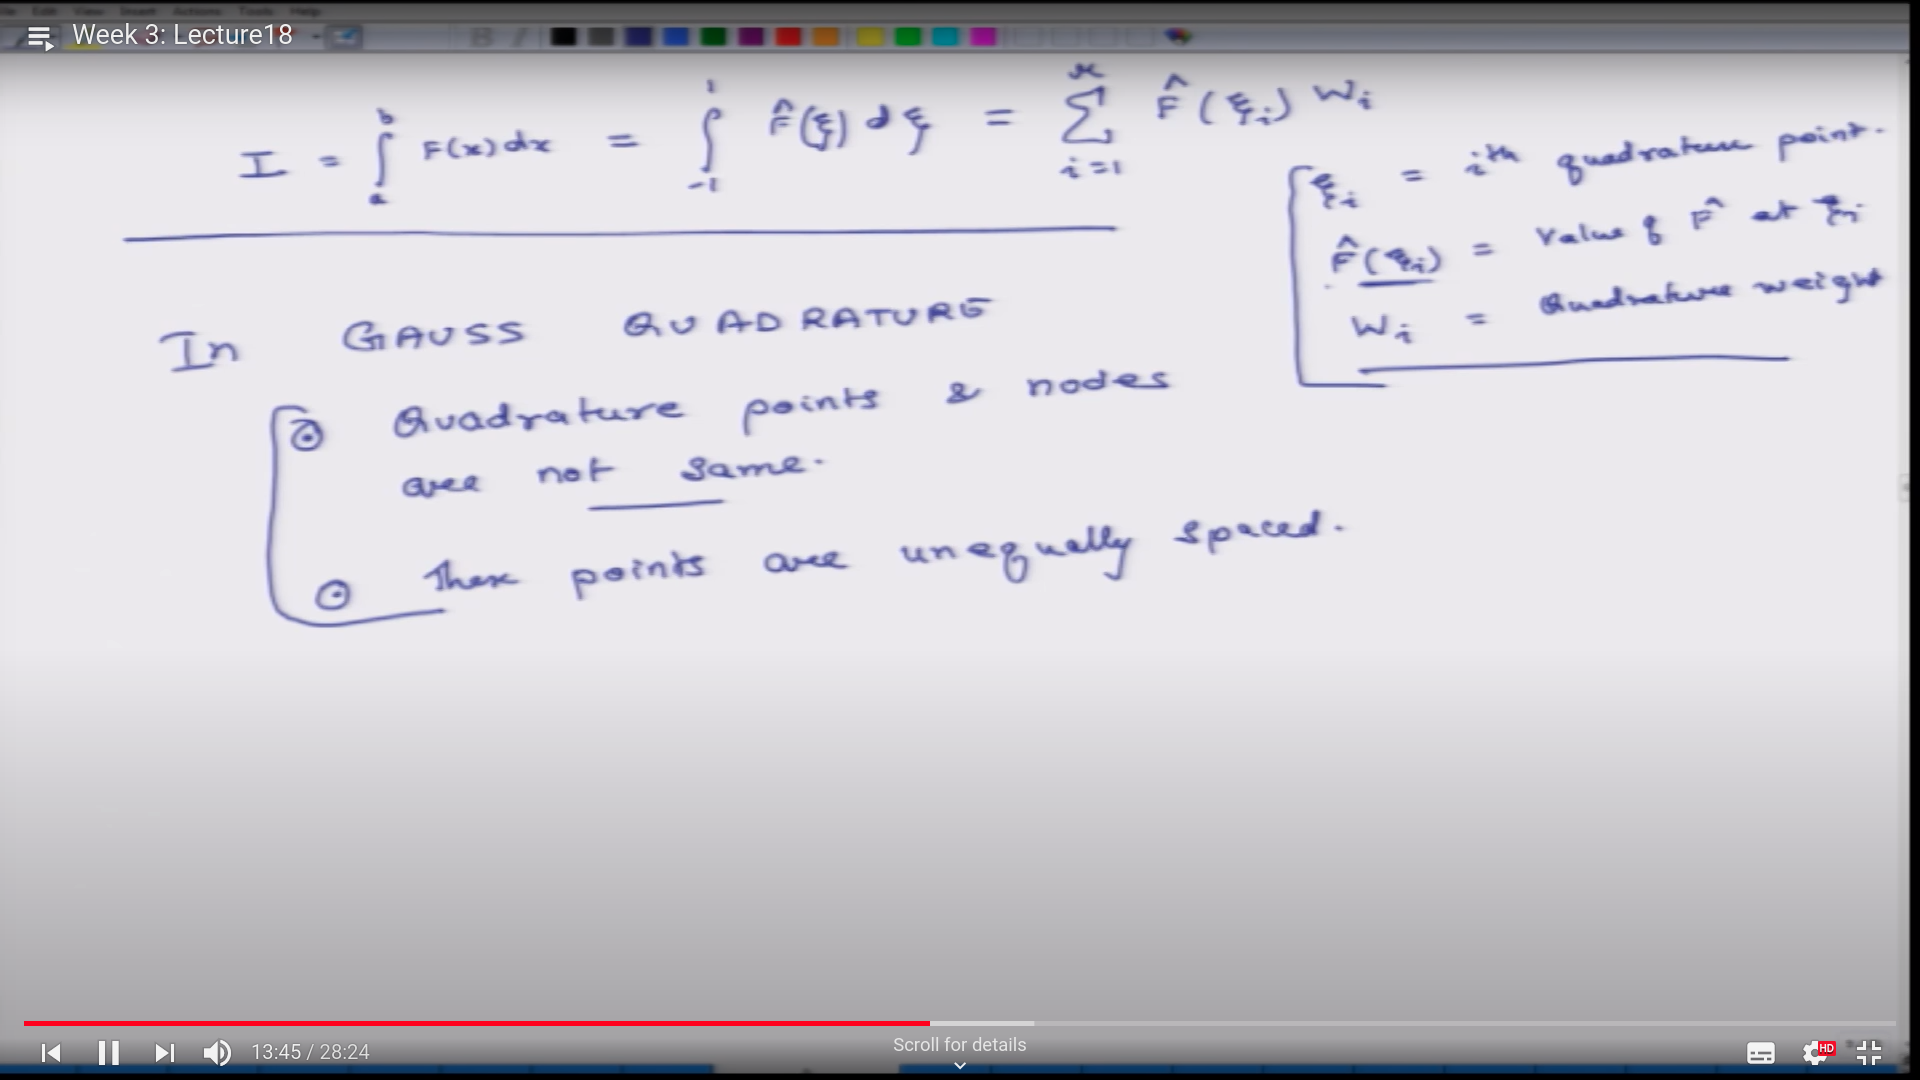 File Edit View Insert Actions Tools Help
Week 3: Lecture18
I = ∫_a^b F(x) dx = ∫_{-1}^{1} F̂(ξ) dξ = Σ_{i=1}^{r} F̂(ξ_i) W_i
ξ_i = i^th quadrature point.
F̂(ξ_i) = Value of F̂ at ξ_i
W_i = Quadrature weight
In GAUSS QUADRATURE
⊙ Quadrature points & nodes
are not same.
⊙ These points are unequally spaced.
13:45 / 28:24
Scroll for details
HD